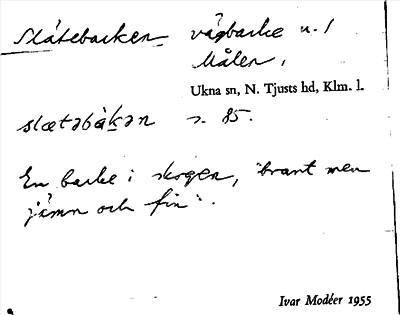 Slätebacken vägbacke n. l
Målen,
Ukna sn, N. Tjusts hd, Klm. l.
slætəbàk̠ən s. 85.
En backe i skogen, "brant men
jämn och fin".
Ivar Modéer 1955